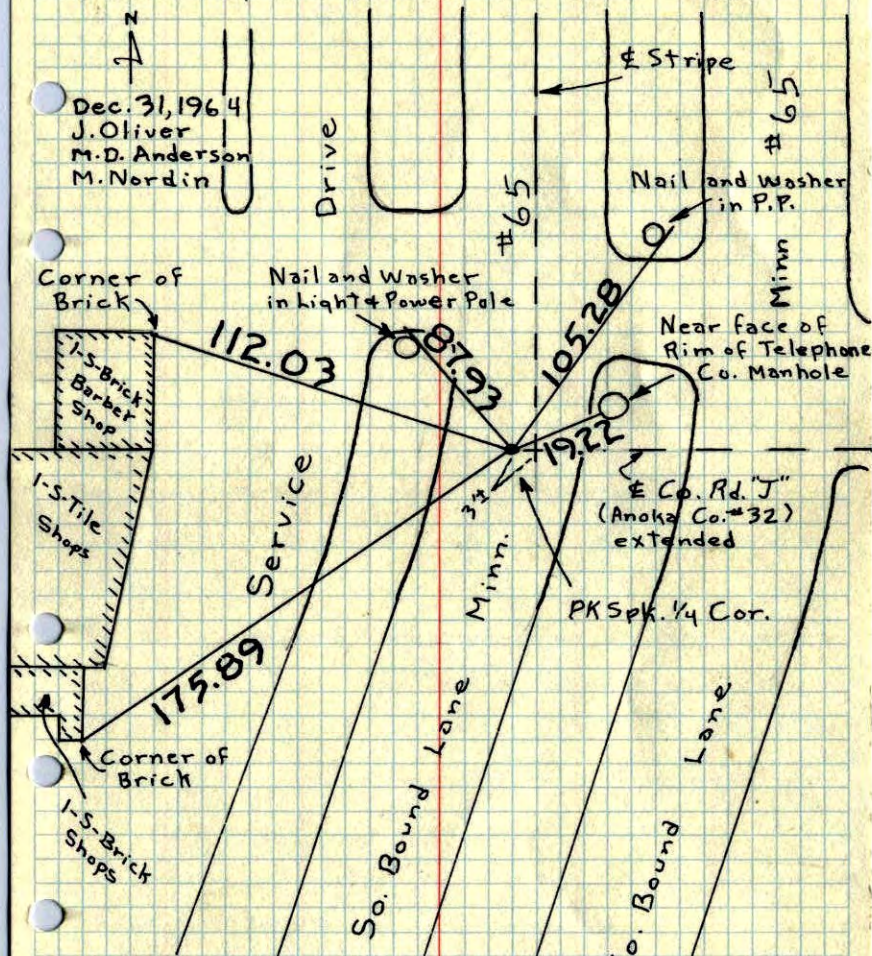 N
Dec. 31, 1964
J. Oliver
M.D. Anderson
M. Nordin
Drive
℄ Stripe
#65
Minn #65
Nail and Washer
in P.P.
Corner of
Brick
Nail and Washer
in Light & Power Pole
112.03
87.93
105.28
Near face of
Rim of Telephone
Co. Manhole
1-S-Brick
Barber
Shop
19.22
1-S-Tile
Shops
Service
℄ Co. Rd. "J"
(Anoka Co. #32)
extended
Minn.
PK Spk. 1/4 Cor.
175.89
Corner of
Brick
1-S-Brick
Shops
So. Bound Lane
o. Bound Lane